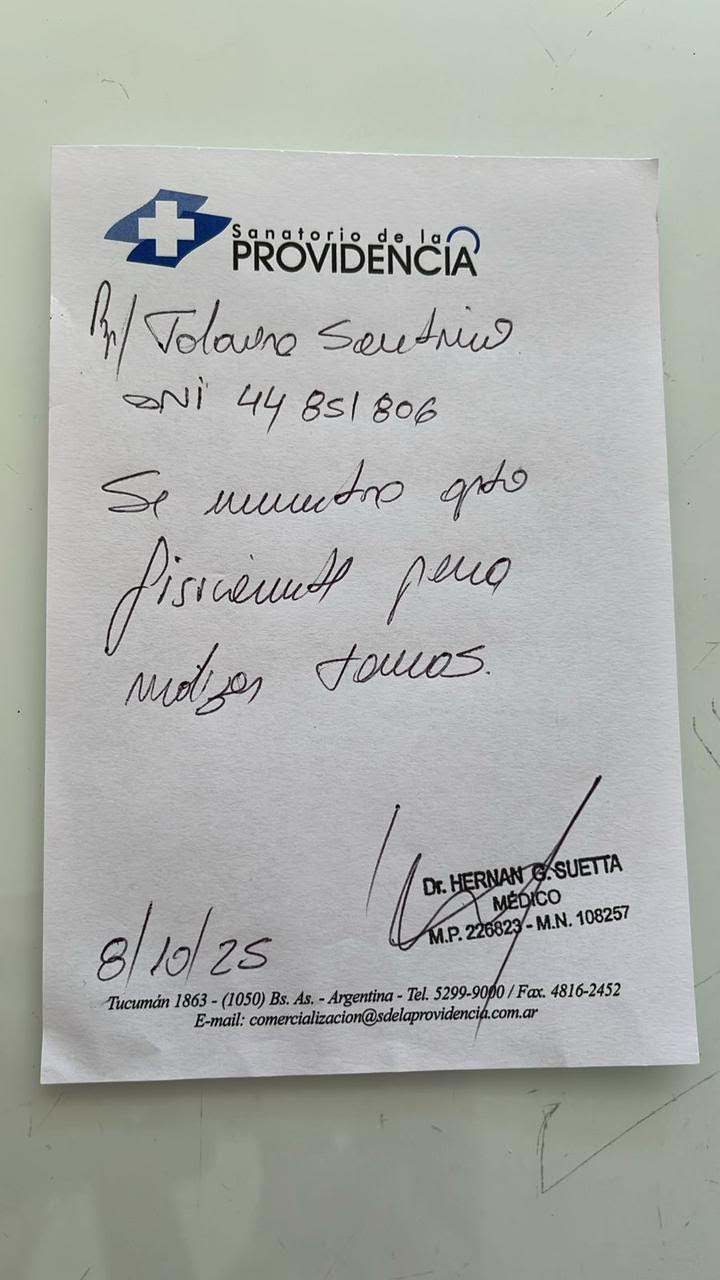 Sanatorio de la
PROVIDENCIA
Rp/
DNI 44 851 806
Se muestra apto
físicamente para
tareas.
Dr. HERNAN G. SUETTA
MÉDICO
M.P. 226823 - M.N. 108257
8/10/25
Tucumán 1863 - (1050) Bs. As. - Argentina - Tel. 5299-9000 / Fax. 4816-2452
E-mail: comercializacion@sdelaprovidencia.com.ar